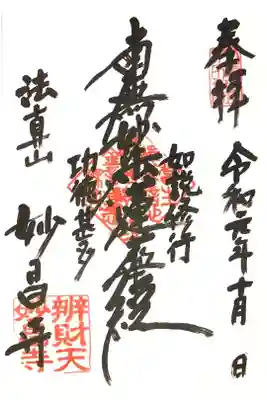 奉拝
令和元年十月 日
如説修行
南無妙法蓮華経
功徳甚多
法真山 妙昌寺
辨財天
妙昌寺